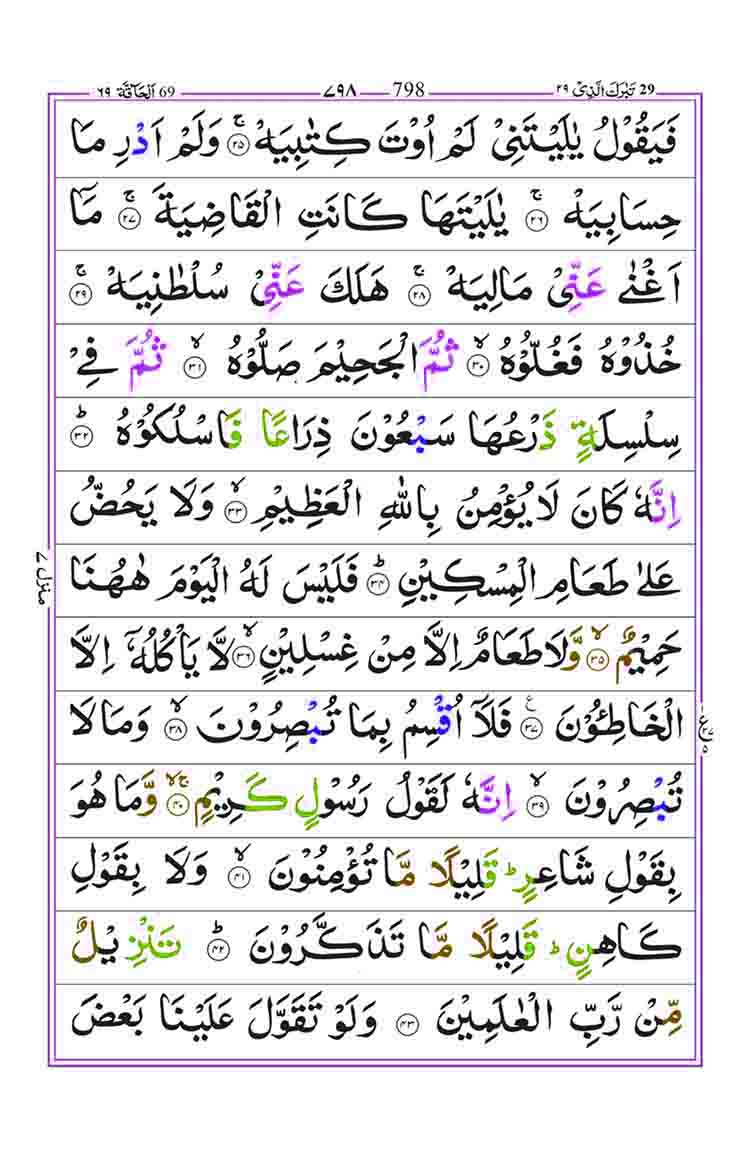 29 تَبٰرَكَ الَّذِیْ ۲۹ 798 ۷۹۸ 69 اَلْحَآقَّة ۶۹
فَیَقُوْلُ یٰلَیْتَنِیْ لَمْ اُوْتَ كِتٰبِیَهْ ۚ﴿۲۵﴾ وَلَمْ اَدْرِ مَا
حِسَابِیَهْ ۚ﴿۲۶﴾ یٰلَیْتَهَا كَانَتِ الْقَاضِیَةَ ۚ﴿۲۷﴾ مَاۤ
اَغْنٰی عَنِّیْ مَالِیَهْ ۚ﴿۲۸﴾ هَلَكَ عَنِّیْ سُلْطٰنِیَهْ ۚ﴿۲۹﴾
خُذُوْهُ فَغُلُّوْهُ ۙ﴿۳۰﴾ ثُمَّ الْجَحِیْمَ صَلُّوْهُ ۙ﴿۳۱﴾ ثُمَّ فِیْ
سِلْسِلَةٍ ذَرْعُهَا سَبْعُوْنَ ذِرَاعًا فَاسْلُكُوْهُ ؕ﴿۳۲﴾
اِنَّهٗ كَانَ لَا یُؤْمِنُ بِاللهِ الْعَظِیْمِ ۙ﴿۳۳﴾ وَلَا یَحُضُّ
عَلٰی طَعَامِ الْمِسْكِیْنِ ؕ﴿۳۴﴾ فَلَیْسَ لَهُ الْیَوْمَ هٰهُنَا
منزل ۷
حَمِیْمٌ ۙ﴿۳۵﴾ وَّلَا طَعَامٌ اِلَّا مِنْ غِسْلِیْنٍ ۙ﴿۳۶﴾ لَّا یَاْكُلُهٗۤ اِلَّا
الْخَاطِـُٔوْنَ ﴿۳۷﴾ۧ فَلَاۤ اُقْسِمُ بِمَا تُبْصِرُوْنَ ۙ﴿۳۸﴾ وَمَا لَا
ع ۵
تُبْصِرُوْنَ ۙ﴿۳۹﴾ اِنَّهٗ لَقَوْلُ رَسُوْلٍ كَرِیْمٍ ۚۙ﴿۴۰﴾ وَّمَا هُوَ
بِقَوْلِ شَاعِرٍ ؕ قَلِیْلًا مَّا تُؤْمِنُوْنَ ۙ﴿۴۱﴾ وَلَا بِقَوْلِ
كَاهِنٍ ؕ قَلِیْلًا مَّا تَذَكَّرُوْنَ ؕ﴿۴۲﴾ تَنْزِیْلٌ
مِّنْ رَّبِّ الْعٰلَمِیْنَ ﴿۴۳﴾ وَلَوْ تَقَوَّلَ عَلَیْنَا بَعْضَ